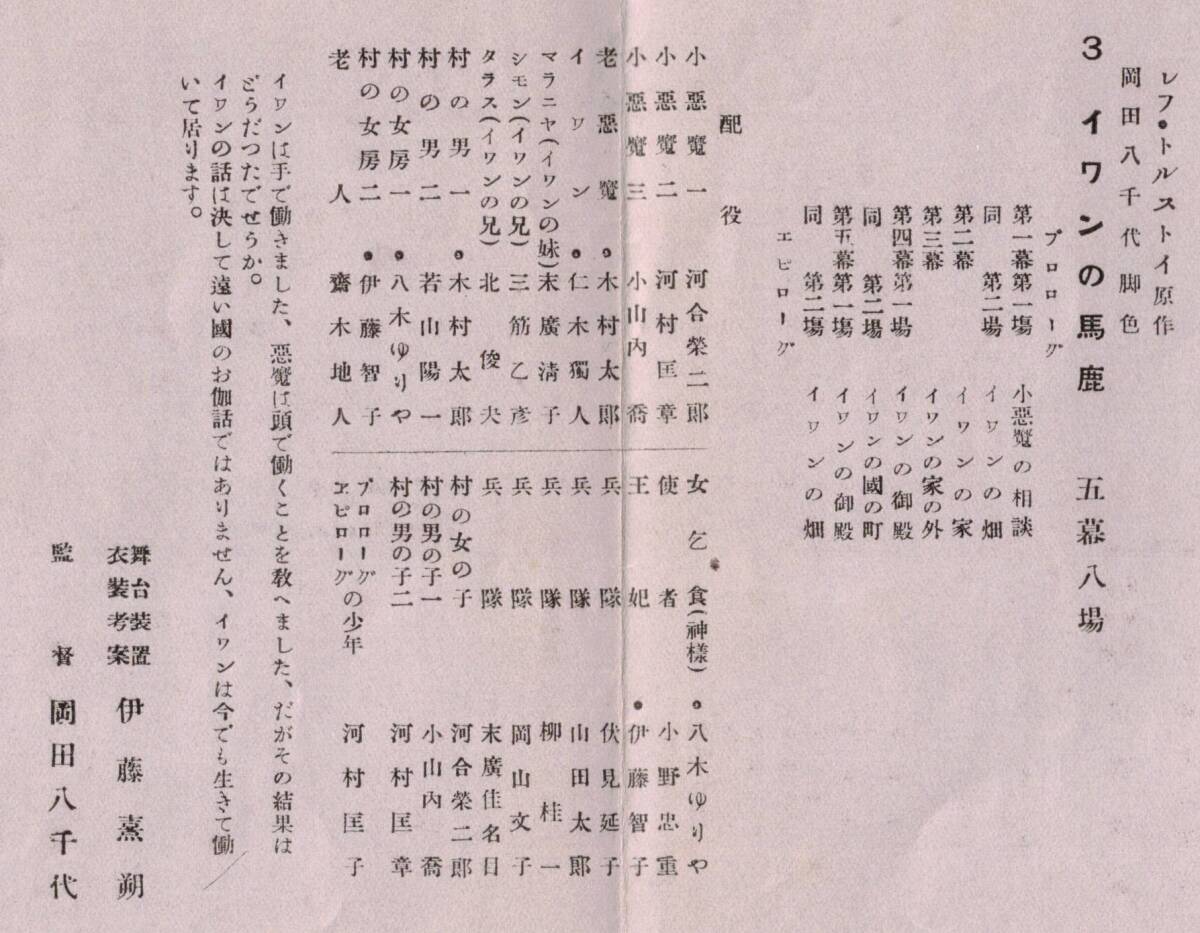 レフ・トルストイ原作
岡田八千代脚色
3 イワンの馬鹿 五幕八場
プロローグ
第一幕第一場 小惡魔の相談
同 第二場 イワンの畑
第二幕 イワンの家
第三幕 イワンの家の外
第四幕第一場 イワンの御殿
同 第二場 イワンの國の町
第五幕第一場 イワンの御殿
同 第二場 イワンの畑
エピローグ
配役
小惡魔一 河合榮二郎
小惡魔二 河村匡章
小惡魔三 小山内喬
老惡魔 ●木村太郎
イワン ●仁木獨人
マラニヤ(イワンの妹) 末廣淸子
シモン(イワンの兄) 三筋乙彦
タラス(イワンの兄) 北俊夫
村の男一 ●木村太郎
村の男二 若山陽一
村の女房一 ●八木ゆりや
村の女房二 ●伊藤智子
老人 齋木地人
女乞食(神樣) ●八木ゆりや
使者 小野忠重
王妃 ●伊藤智子
兵隊 伏見延子
兵隊 山田太郎
兵隊 柳桂一
兵隊 岡山文子
兵隊 末廣佳名日
村の女の子 河合榮二郎
村の男の子一 小山内喬
村の男の子二 河村匡章
プロローグ
エピローグの少年 河村匡子
イワンは手で働きました、惡魔は頭で働くことを敎へました、だがその結果は
どうだつたでせうか。
イワンの話は決して遠い國のお伽話ではありません、イワンは今でも生きて働
いて居ります。
舞台装置
衣装考案 伊藤熹朔
監督 岡田八千代